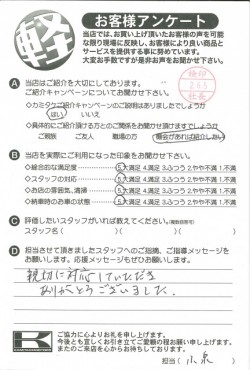 軽
お客様アンケート
当店では、お買い上げ頂いたお客様の声を可能
な限り現場に反映し、お客様により良い商品と
サービスを提供する事に努めております。
大変お手数ですが是非お声をお聞かせ下さい。
A 当店はご紹介を大切にしております。
ご紹介キャンペーンについてお聞かせ下さい。
検印
社長
●カミタケご紹介キャンペーンのご説明はありましたでしょうか
はい いいえ
●具体的にご紹介頂ける方とのご関係をお聞かせ頂けますでしょうか
ご親族 ご友人 職場の方 機会があれば紹介したい
B 当店を実際にご利用になられた印象をお聞かせ下さい。
●総合的な満足度 5.大満足 4.満足 3.ふつう 2.やや不満 1.不満
●スタッフの対応 5.大満足 4.満足 3.ふつう 2.やや不満 1.不満
●お店の雰囲気、清掃 5.大満足 4.満足 3.ふつう 2.やや不満 1.不満
●納車時のお車の状態 5.大満足 4.満足 3.ふつう 2.やや不満 1.不満
C 評価したいスタッフがいれば教えてください。(複数回答可)
スタッフ名( )( )( )
D 担当させて頂きましたスタッフへのご指摘、ご指導メッセージを
お願いします。応援メッセージもぜひお願いします。
親切に対応していただき
ありがとうございました。
K
ご協力に心よりお礼を申し上げます。
今後とも宜しくお引き立てご愛顧の程お願い申し上げます。
またのご来店を心からお待ちしております。
担当( 小泉 )